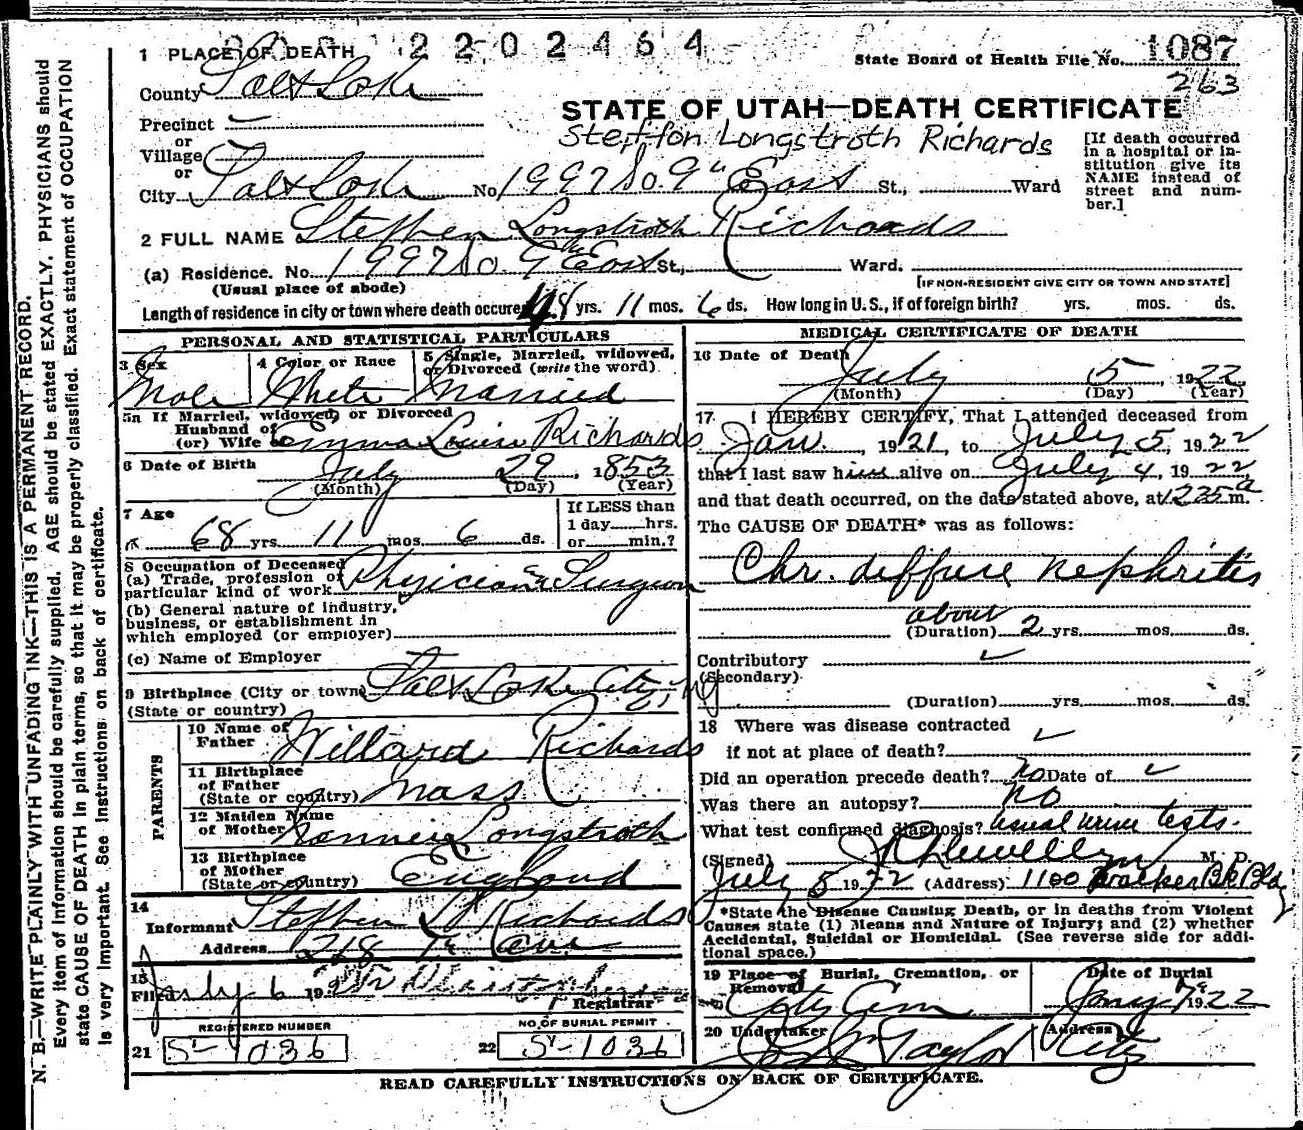 N. B.—WRITE PLAINLY WITH UNFADING INK—THIS IS A PERMANENT RECORD.
Every item of information should be carefully supplied. AGE should be stated EXACTLY. PHYSICIANS should
state CAUSE OF DEATH in plain terms, so that it may be properly classified. Exact statement of OCCUPATION
is very important. See instructions on back of certificate.
2202464
1 PLACE OF DEATH
State Board of Health File No. 1087
263
County Salt Lake
STATE OF UTAH—DEATH CERTIFICATE
Precinct
or
Village
or
Steffon Longstroth Richards
[If death occurred
in a hospital or in-
stitution give its
NAME instead of
street and num-
ber.]
City Salt Lake No. 1997 So. 9" East St., Ward
2 FULL NAME Stephen Longstroth Richards
(a) Residence. No. 1997 So. 9th East St., Ward.
(Usual place of abode) [IF NON-RESIDENT GIVE CITY OR TOWN AND STATE]
Length of residence in city or town where death occured 48 yrs. 11 mos. 6 ds. How long in U. S., if of foreign birth? yrs. mos. ds.
PERSONAL AND STATISTICAL PARTICULARS
3 Sex 4 Color or Race 5 Single, Married, widowed,
or Divorced (write the word).
Male White Married
5a If Married, widowed, or Divorced
Husband of
(or) Wife Emma Louise Richards
6 Date of Birth July 29, 1853
(Month) (Day) (Year)
7 Age If LESS than
1 day hrs.
68 yrs. 11 mos. 6 ds. or min.?
8 Occupation of Deceased
(a) Trade, profession or
particular kind of work Physician & Surgeon
(b) General nature of industry,
business, or establishment in
which employed (or employer)
(c) Name of Employer
9 Birthplace (City or town) Salt Lake City
(State or country)
PARENTS
10 Name of
Father Willard Richards
11 Birthplace
of Father
(State or country) Mass
12 Maiden Name
of Mother Nannie Longstroth
13 Birthplace
of Mother
(State or country) England
14
Informant Stephen L Richards
Address 218 Ave
15
Filed July 6 19
Registrar
REGISTERED NUMBER NO. OF BURIAL PERMIT
21 S-1036 22 S-1036
MEDICAL CERTIFICATE OF DEATH
16 Date of Death
July 5, 1922
(Month) (Day) (Year)
17 I HEREBY CERTIFY, That I attended deceased from
Jan. 1921, to July 5, 1922
that I last saw him alive on July 4, 1922
and that death occurred, on the date stated above, at 1235 a m.
The CAUSE OF DEATH* was as follows:
Chr. diffuse nephritis
about
(Duration) 2 yrs. mos. ds.
Contributory
(Secondary)
(Duration) yrs. mos. ds.
18 Where was disease contracted
if not at place of death?
Did an operation precede death? No Date of
Was there an autopsy? No
What test confirmed diagnosis? Usual urine tests.
(Signed) Llewellyn M. D.
July 5 1922 (Address) 1100 Walker Bk Bldg
*State the Disease Causing Death, or in deaths from Violent
Causes state (1) Means and Nature of Injury; and (2) whether
Accidental, Suicidal or Homicidal. (See reverse side for addi-
tional space.)
19 Place of Burial, Cremation, or
Removal
Date of Burial
City Cem 1922
20 Undertaker Address
Jos Taylor City
READ CAREFULLY INSTRUCTIONS ON BACK OF CERTIFICATE.